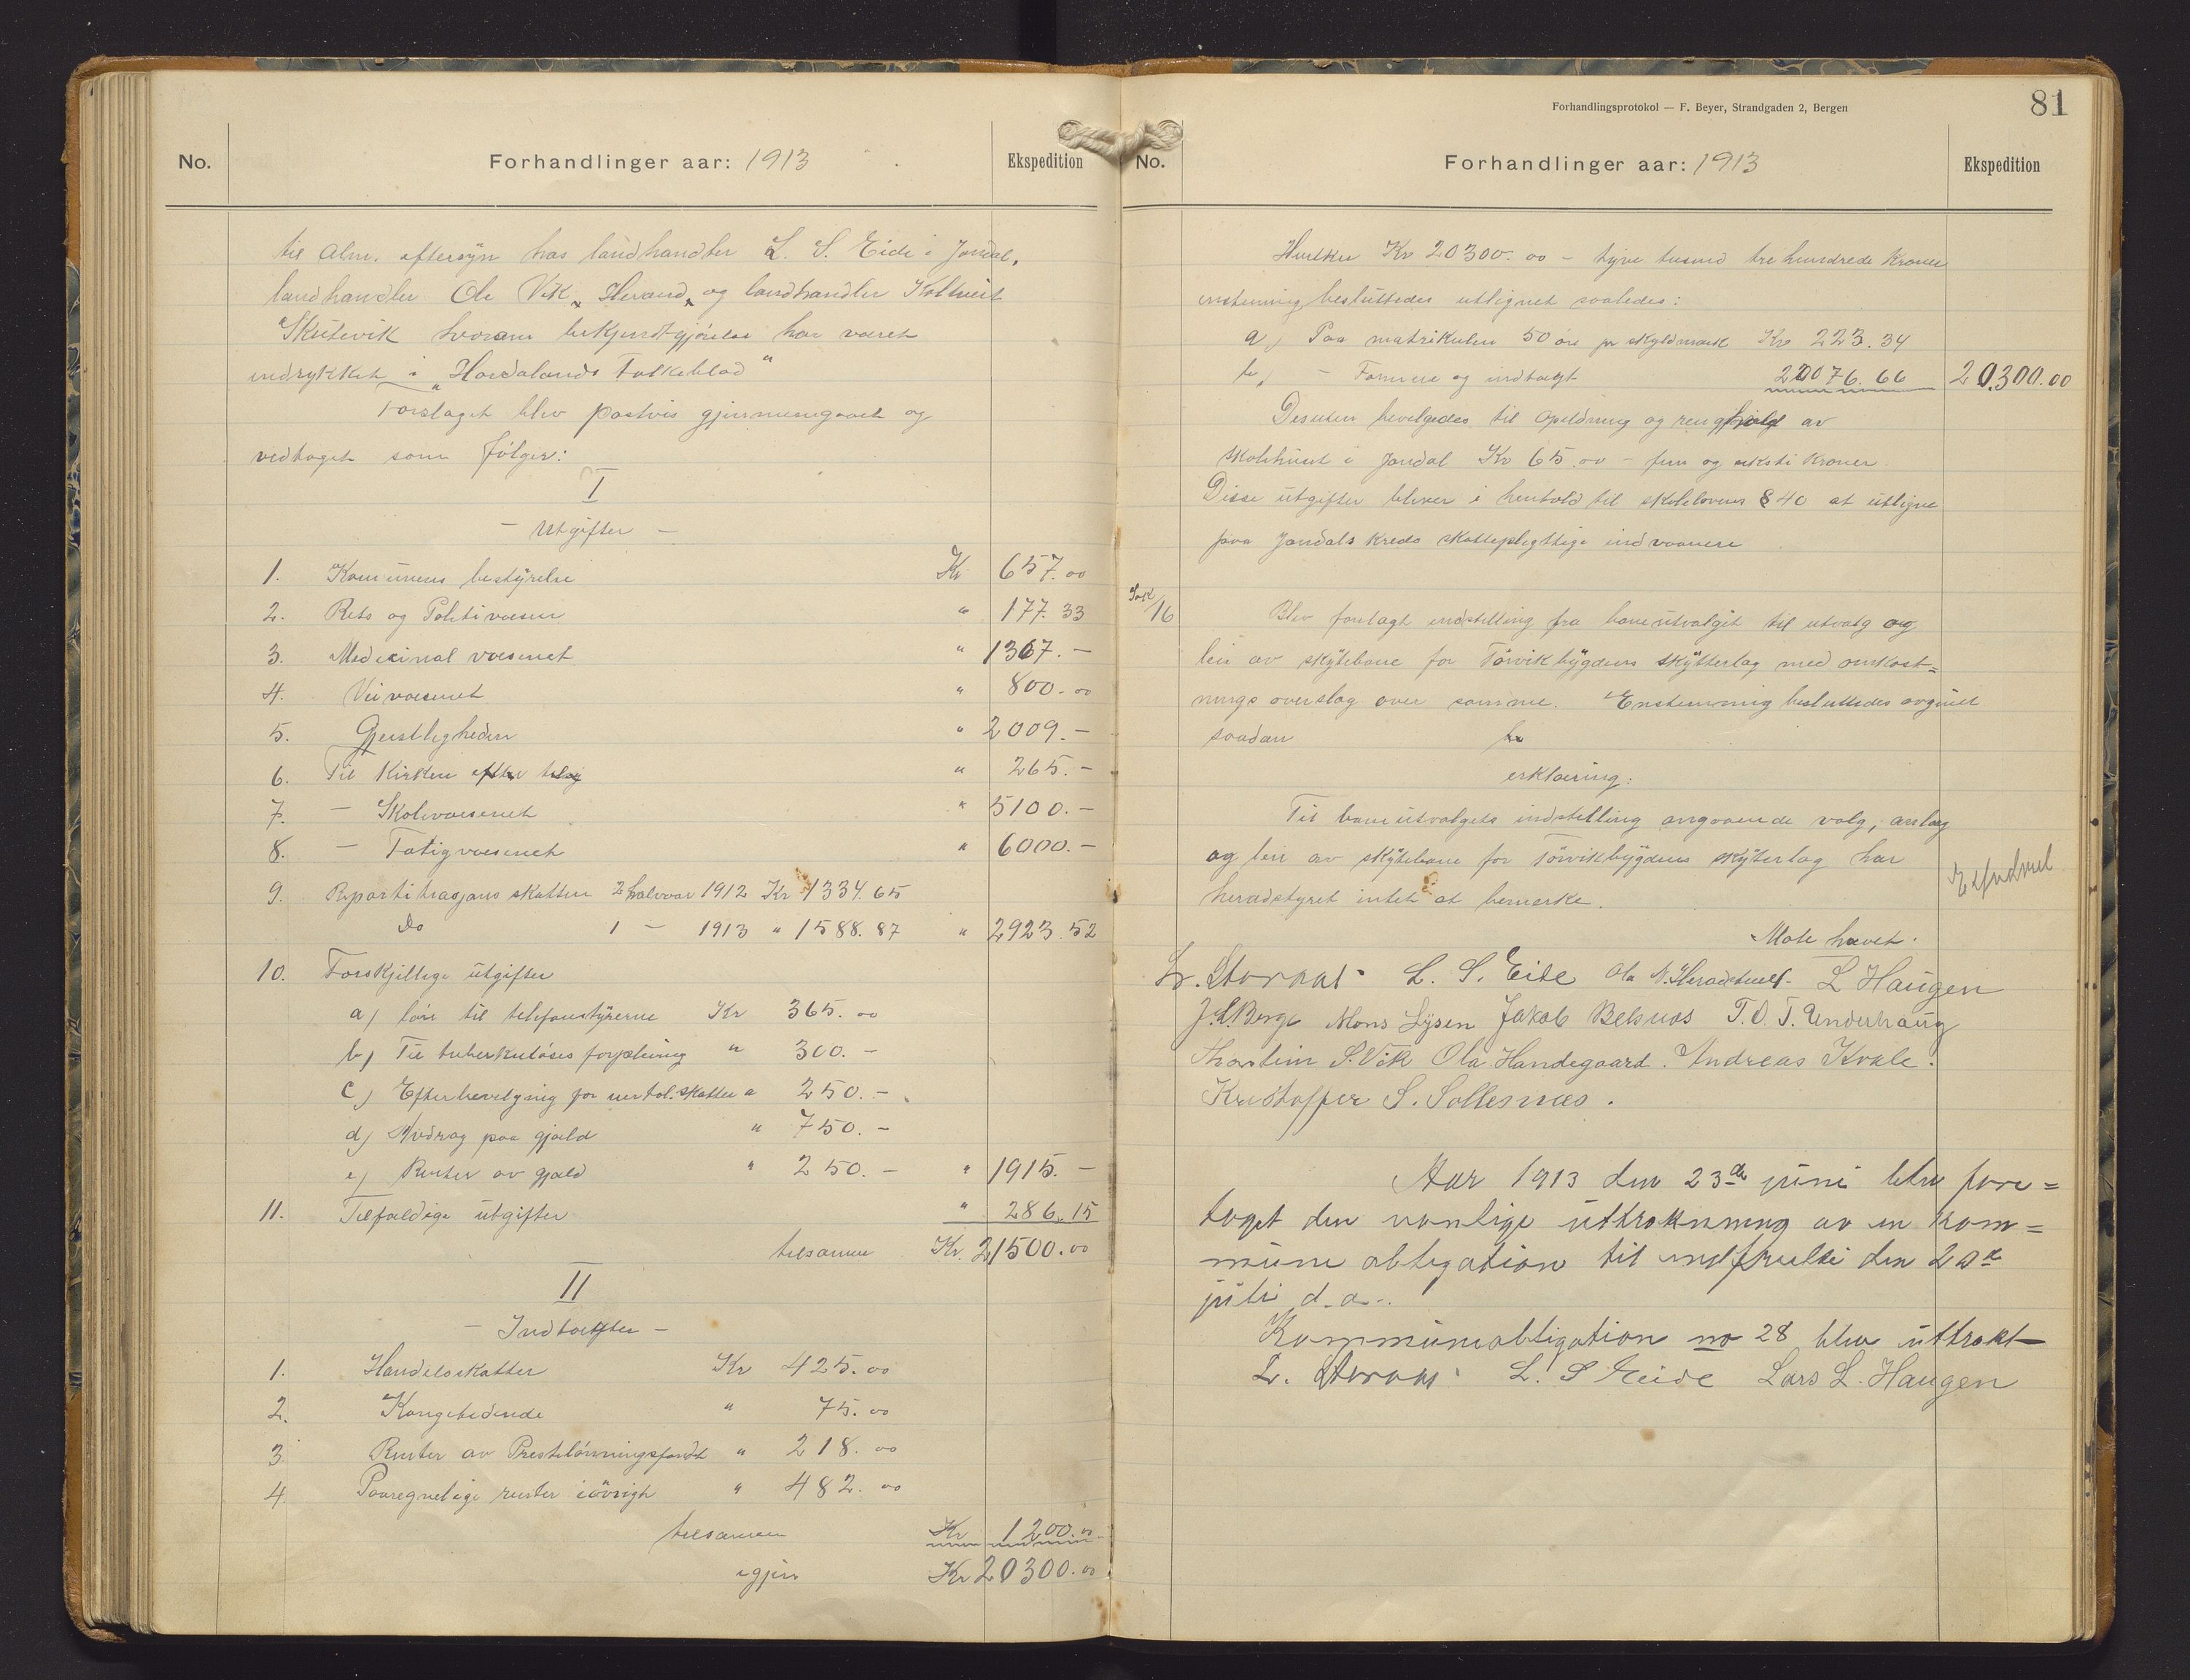 No.
Forhandlinger aar: 1913
Ekspedition
til alm. eftersyn hos landhandler L. S. Eide i Jondal,
landhandler Ole Vik, Herand, og landhandler Koltveit
Skutevik hvorom bekjendtgjörelse har været
indrykket i "Hordalands Folkeblad"
Forslaget blev postvis gjennemgaaet og
vedtaget som fölger:
I
- Utgifter -
1. Kommunens bestyrelse Kr 657.00
2. Rets og Politivæsen " 177.33
3. Medicinal væsenet " 1367.-
4. Veivæsenet " 800.00
5. Gjeistligheden " 2009.-
6. Til Kirken efter " 265.-
7. - Skolevæsenet " 5100.-
8. - Fatigvæsenet " 6000.-
9. Repartitrasjons skatten 2 halvaar 1912 Kr 1334.65
Do 1 - 1913 " 1588.87 " 2923.52
10. Forskjellige utgifter
a) lön til telefonstyrerne Kr 365.00
b) Til tuberkulöses forpleining " 300.-
c) Efterbevilgning for uertol. skatter " 250.-
d) Avdrag paa gjæld " 750.-
e) Renter av gjæld " 250.- " 1915.-
11. Tilfældige utgifter " 286.15
tilsamen Kr. 21500.00
II
- Indtægter -
1. Handelsskatter Kr 425.00
2. Kongetiende " 75.00
3. Renter av Prestelönningsfondt " 218.00
4 Paaregnelige renter iövrigt " 482.00
tilsamen Kr 1200.00
igjen Kr 20300.00
Forhandlingsprotokol — F. Beyer, Strandgaden 2, Bergen
81
No.
Forhandlinger aar: 1913
Ekspedition
Hvilke Kr 20300.00 - tyve tusend tre hundrede Kroner
enstemmig besluttedes utlignet saaledes:
a) Paa matrikulen 50 öre pr skyldmark Kr 223.34
b) - Formue og indtægt 20076.66 20.300.00
Desuten bevilgedes til opeldning og renghold av
Skolehuset i Jondal Kr 65.00 - fem og seksti Kroner
Disse utgifter bliver i henhold til skolelovens § 40 at utligne
paa Jondals kreds skattepligttige indvaanere
Sak/16
Blev forelagt indstilling fra baneutvalget til utvalg og
leie av skytebane for Törvikbygdens Skytterlag med omkost=
nings overslag over samme. Enstemmig besluttedes avgivet
saadan
erklæring:
Til baneutvalgets indstilling angaaende valg, anlæg
og leie av skytebane for Törvikbygdens skyterlag har
heradstyret intet at bemerke.
Möte hævet.
L. Storaas. L. S. Eide Ola N. Heradstveit. L Haugen
J. L. Berge Mons Lysen Jakob Belsnes T. O. T. Underhaug
Thorstein S. Vik Ola Handegaard. Andreas Kvale.
Kristoffer S. Sollesnæs.
Aar 1913 den 23de juni blev fore=
taget den vanlige uttrækning av en kom=
mune obligation til indfrielse den 20de
juli d. a.
Kommuneobligation no 28 blev uttrækt
L. Storaas. L. S Eide Lars L. Haugen